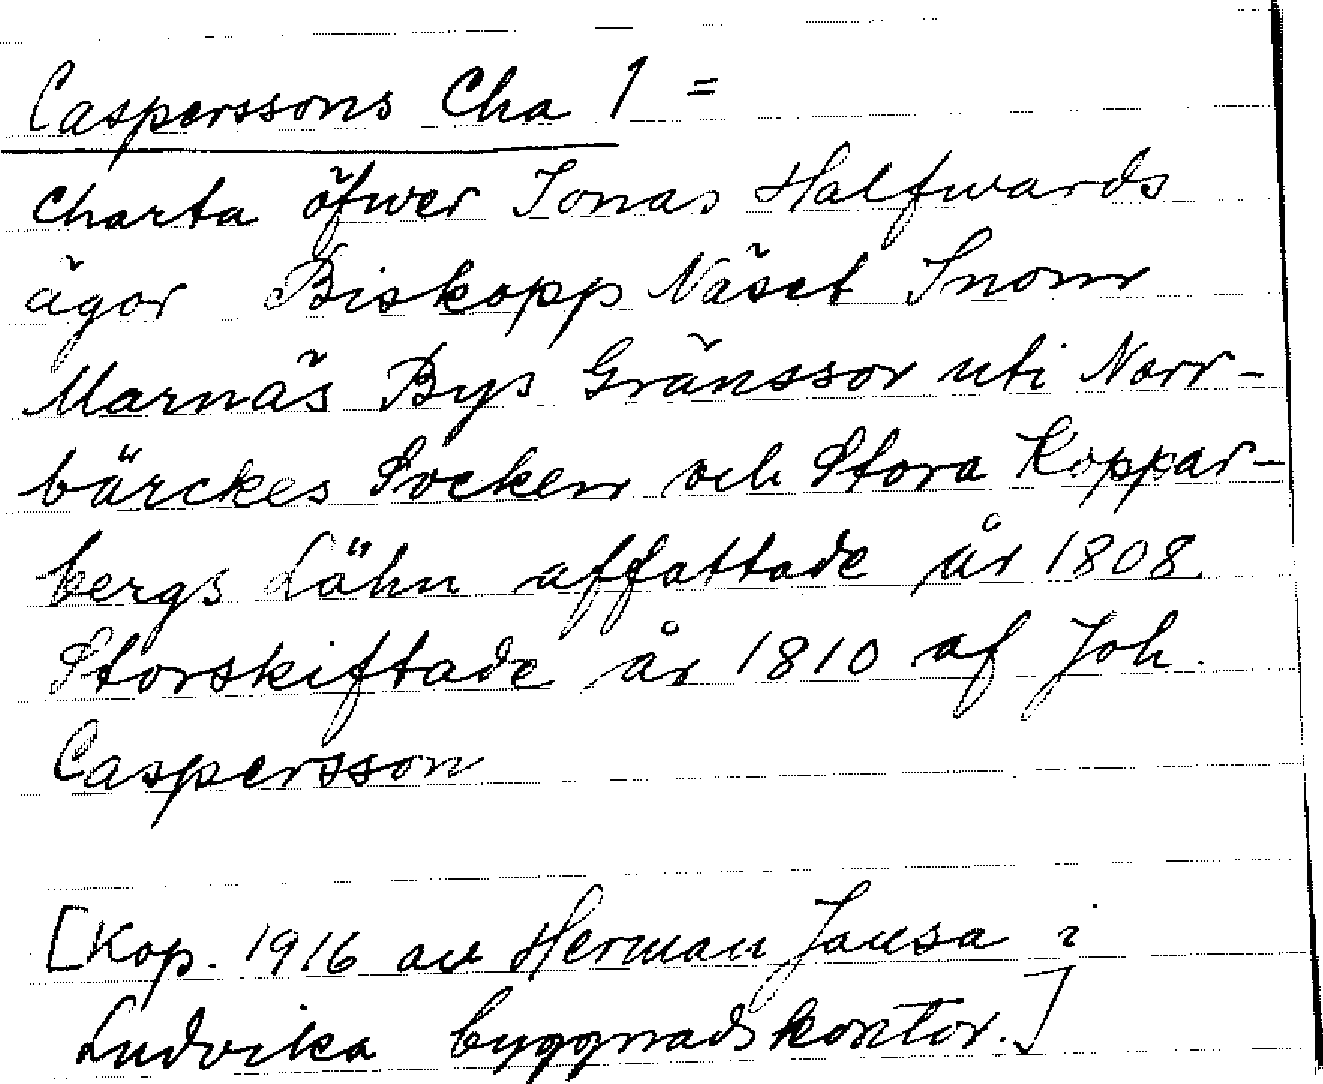 Casperssons Cha 1 =
Charta öfwer Jonas Halfwards
ägor Biskopp Näset Inom
Marnäs Bys Gränssor uti Norr-
bärckes Socken och Stora Koppar-
bergs Lähn affattade år 1808.
Storskiftade år 1810 af Joh.
Caspersson
[Kop. 1916 av Herman Jansa i
Ludvika byggnadskontor.]